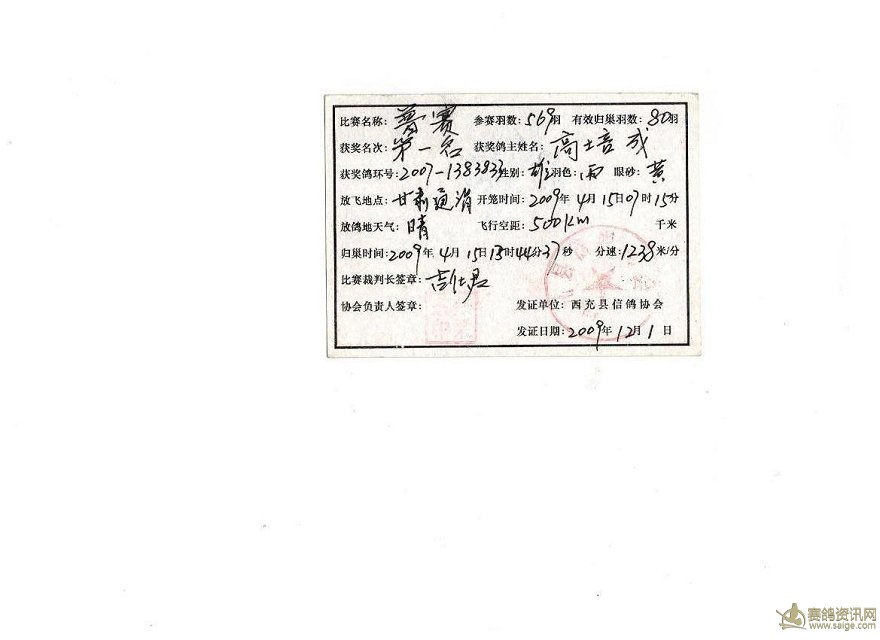 比赛名称: 普赛 参赛羽数: 569羽 有效归巢羽数: 80羽
获奖名次: 第一名 获奖鸽主姓名: 高培成
获奖鸽环号: 2007-138383 性别: 雄 羽色: 雨 眼砂: 黄
放飞地点: 甘肃通渭 开笼时间: 2009年4月15日07时15分
放鸽地天气: 晴 飞行空距: 500km 千米
归巢时间: 2009年4月15日 时44分37秒 分速: 1238米/分
比赛裁判长签章:
协会负责人签章: 发证单位: 西充县信鸽协会
发证日期: 2009年12月1日
赛鸽资讯网
www.saige.com